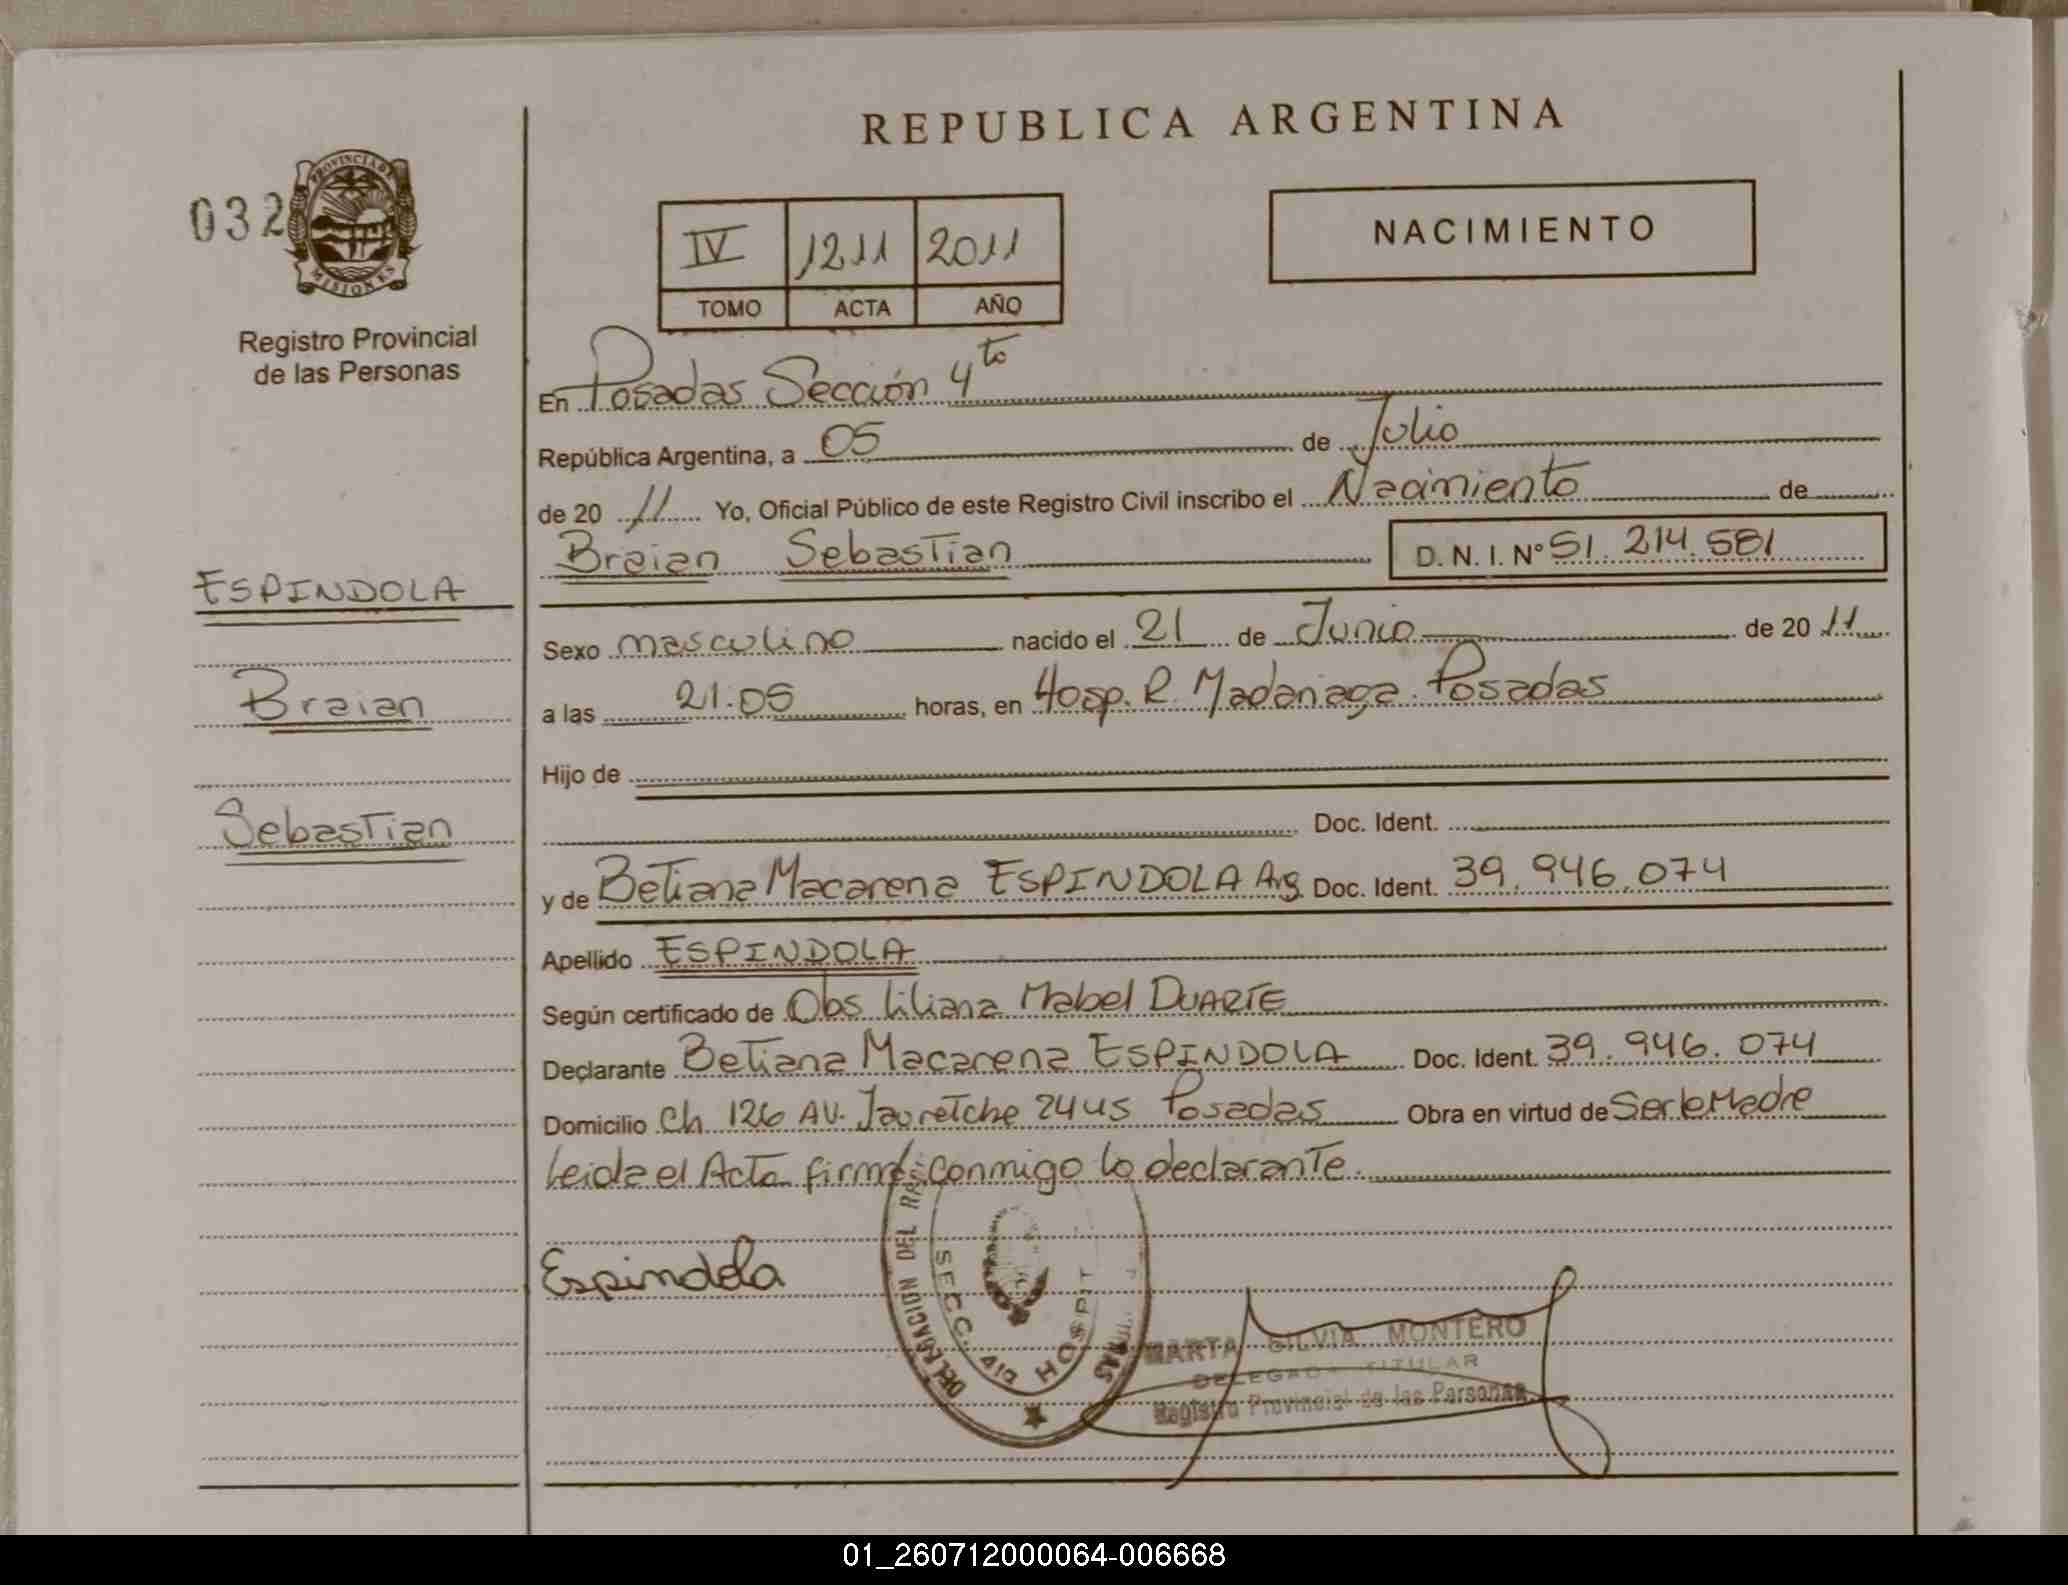 REPUBLICA ARGENTINA
032
PROVINCIA DE
MISIONES
Registro Provincial
de las Personas
IV 1211 2011
TOMO ACTA AÑO
NACIMIENTO
En Posadas Sección 4to
República Argentina, a 05 de Julio
de 20 11 Yo, Oficial Público de este Registro Civil inscribo el Nacimiento de
Braian Sebastian D. N. I. Nº 51.214.581
ESPINDOLA
Braian
Sebastian
Sexo masculino nacido el 21 de Junio de 20 11
a las 21:05 horas, en Hosp. R. Madariaga. Posadas
Hijo de
Doc. Ident.
y de Betiana Macarena ESPINDOLA Arg. Doc. Ident. 39.946.074
Apellido ESPINDOLA
Según certificado de Obs Liliana Mabel DUARTE
Declarante Betiana Macarena ESPINDOLA Doc. Ident. 39.946.074
Domicilio Ch 126 AV. Jauretche 2445 Posadas Obra en virtud de Ser la Madre
Leida el Acta firma conmigo la declarante.
Espindola
DELEGACION DEL
SECC. 4ta HOSPIT
MARTA SILVIA MONTERO
DELEGADA TITULAR
Registro Provincial de las Personas
01_260712000064-006668